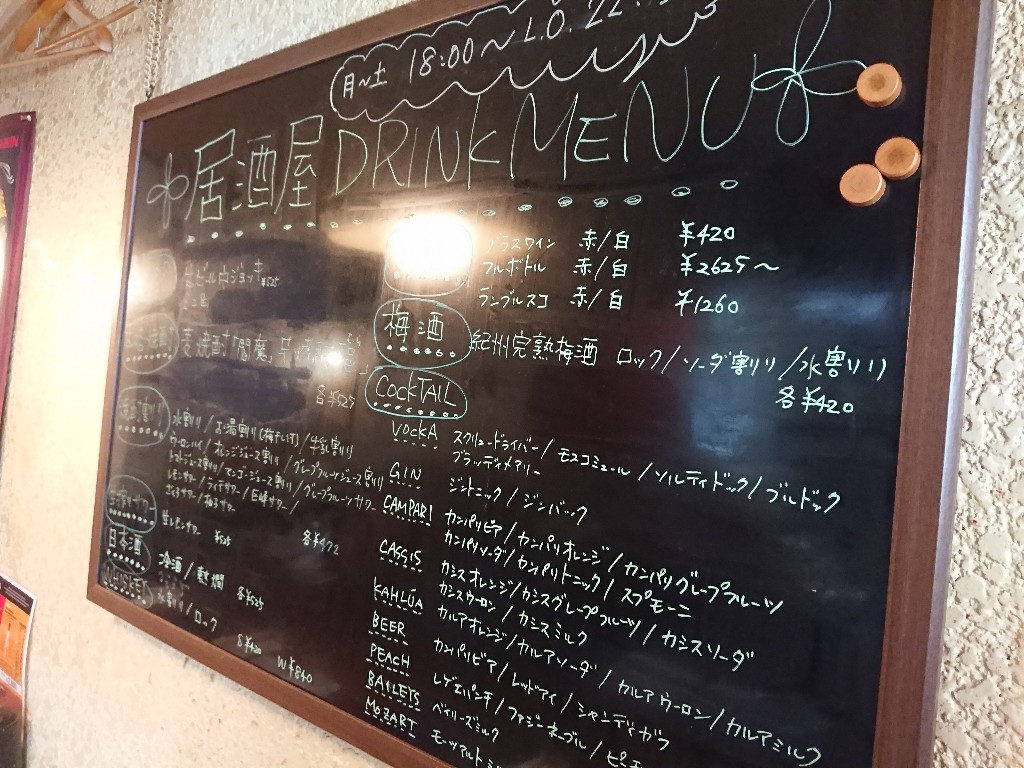 月~土 18:00~L.O.22:
居酒屋 DRINK MENU
グラスワイン 赤/白 ¥420
フルボトル 赤/白 ¥2625~
ランブルスコ 赤/白 ¥1260
梅酒 紀州完熟梅酒 ロック/ソーダ割り/水割り
各¥420
COCKTAIL
VOCKA スクリュードライバー/モスコミュール/ソルティドック/ブルドック
ブラッディメアリー
GIN ジントニック/ジンバック
CAMPARI カンパリビア/カンパリオレンジ/カンパリグレープフルーツ
カンパリソーダ/カンパリトニック/スプモーニ
CASSIS カシスオレンジ/カシスグレープフルーツ/カシスソーダ
カシスウーロン/カシスミルク
KAHLÚA カルアオレンジ/カルアソーダ/カルアウーロン/カルアミルク
BEER カンパリビア/レッドアイ/シャンディガフ
PEACH レゲエパンチ/ファジーネーブル/ピーチ
BAILEYS ベイリーズミルク
MOZART モーツァルトミ
生ビール中ジョッキ ¥525
「閻魔」
各¥525
水割り/お湯割り(梅干し付)/牛乳割り
ウーロンハイ/オレンジジュース割り/グレープフルーツジュース割り
トマトジュース割り/マンゴージュース割り/グレープフルーツサワー
レモンサワー/ライチサワー/巨峰サワー/
梅子サワー
各¥472
生レモンサワー ¥525
日本酒 冷酒/熱燗 各¥525
水割り/ロック
S¥420 W¥840